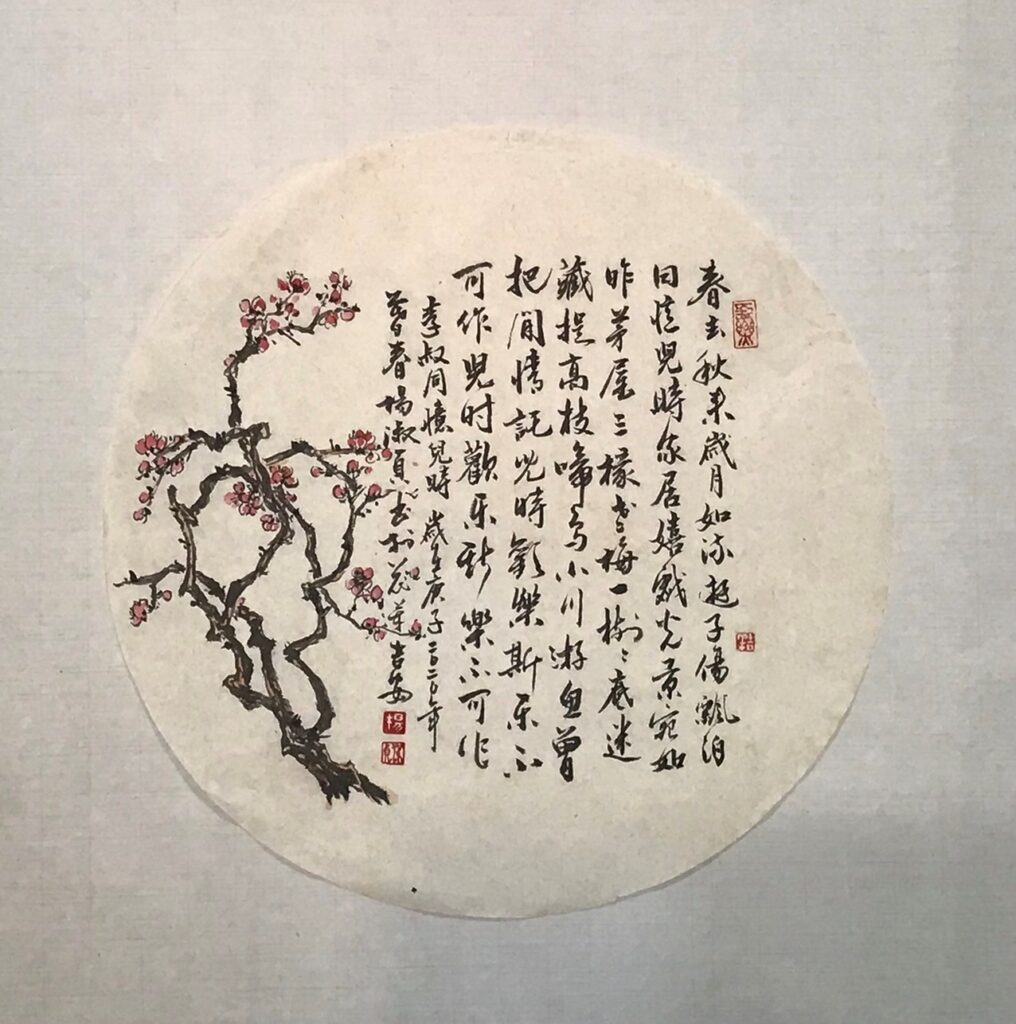 春去秋来歲月如流遊子傷飄泊
回憶兒時家居嬉戲光景宛如
昨茅屋三椽老梅一樹〻底迷
藏捉高枝啼鳥小川游魚曾
把閒情託兒時歡樂斯乐不
可作兒时歡乐斯樂不可作
李叔同憶兒時 歲在庚子二〇二〇年
暮春楊淑貞書於花蓮吉安
楊